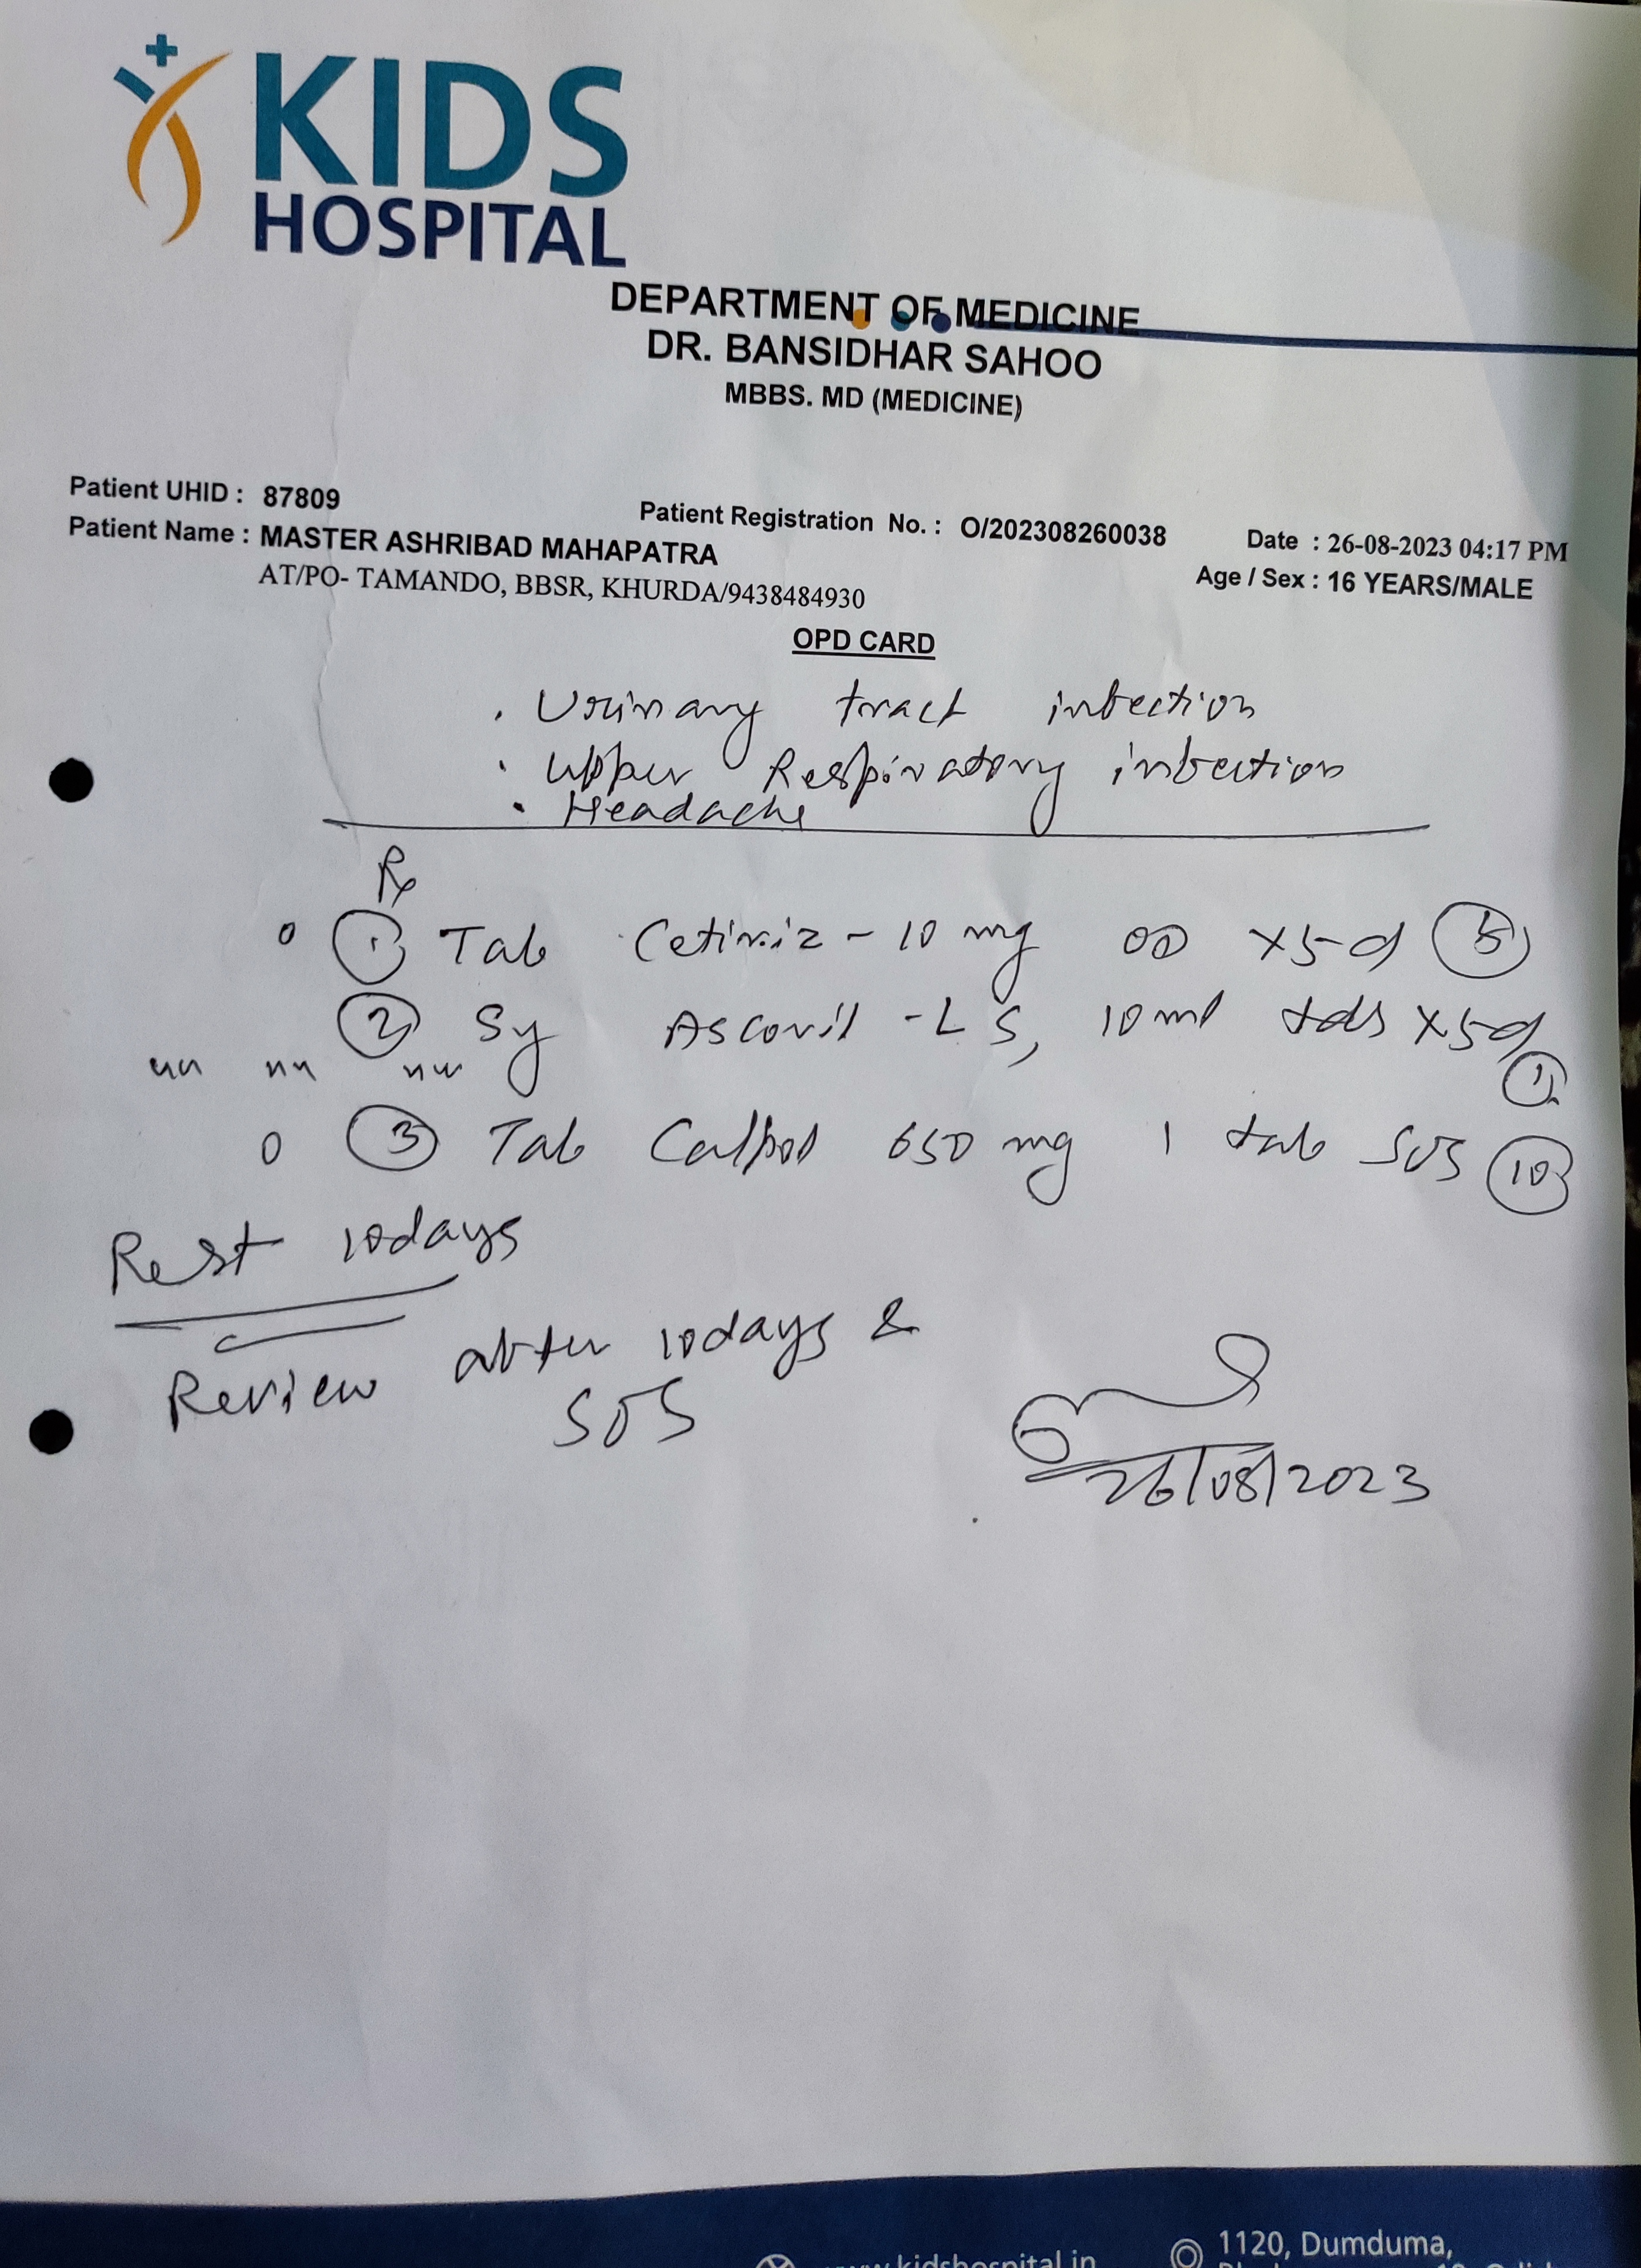 KIDS
HOSPITAL
DEPARTMENT OF MEDICINE
DR. BANSIDHAR SAHOO
MBBS. MD (MEDICINE)
Patient UHID : 87809
Patient Registration No. : O/202308260038
Date : 26-08-2023 04:17 PM
Patient Name : MASTER ASHRIBAD MAHAPATRA
Age / Sex : 16 YEARS/MALE
AT/PO- TAMANDO, BBSR, KHURDA/9438484930
OPD CARD
. Urinary tract infection
. Upper Respiratory infection
. Headache
Rx
① Tab Cetiriz - 10 mg OD x5d ⑤
② Sy Ascoril - LS, 10 ml tds x5d
①
③ Tab Calpol 650 mg 1 tab SOS ⑩
Rest 10days
Review after 10days &
SOS
26/08/2023
www.kidshospital.in
1120, Dumduma,